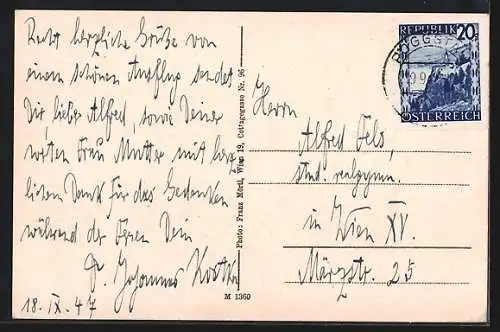 Recht herzliche Grüße von
einem schönen Ausflug sendet
Dir, lieber Alfred, sowie Deiner
werten Frau Mutter mit herz-
lichem Dank für das Gedenken
während der Ferien Dein
Johannes
18. IX. 47
Photo: Franz Mörtl, Wien 19, Cottagegasse Nr. 96
M 1360
REPUBLIK 20
ÖSTERREICH
PÖGGST
Herrn
Alfred Fels,
stud. realgymn.
in Wien XV.
Märzstr. 25